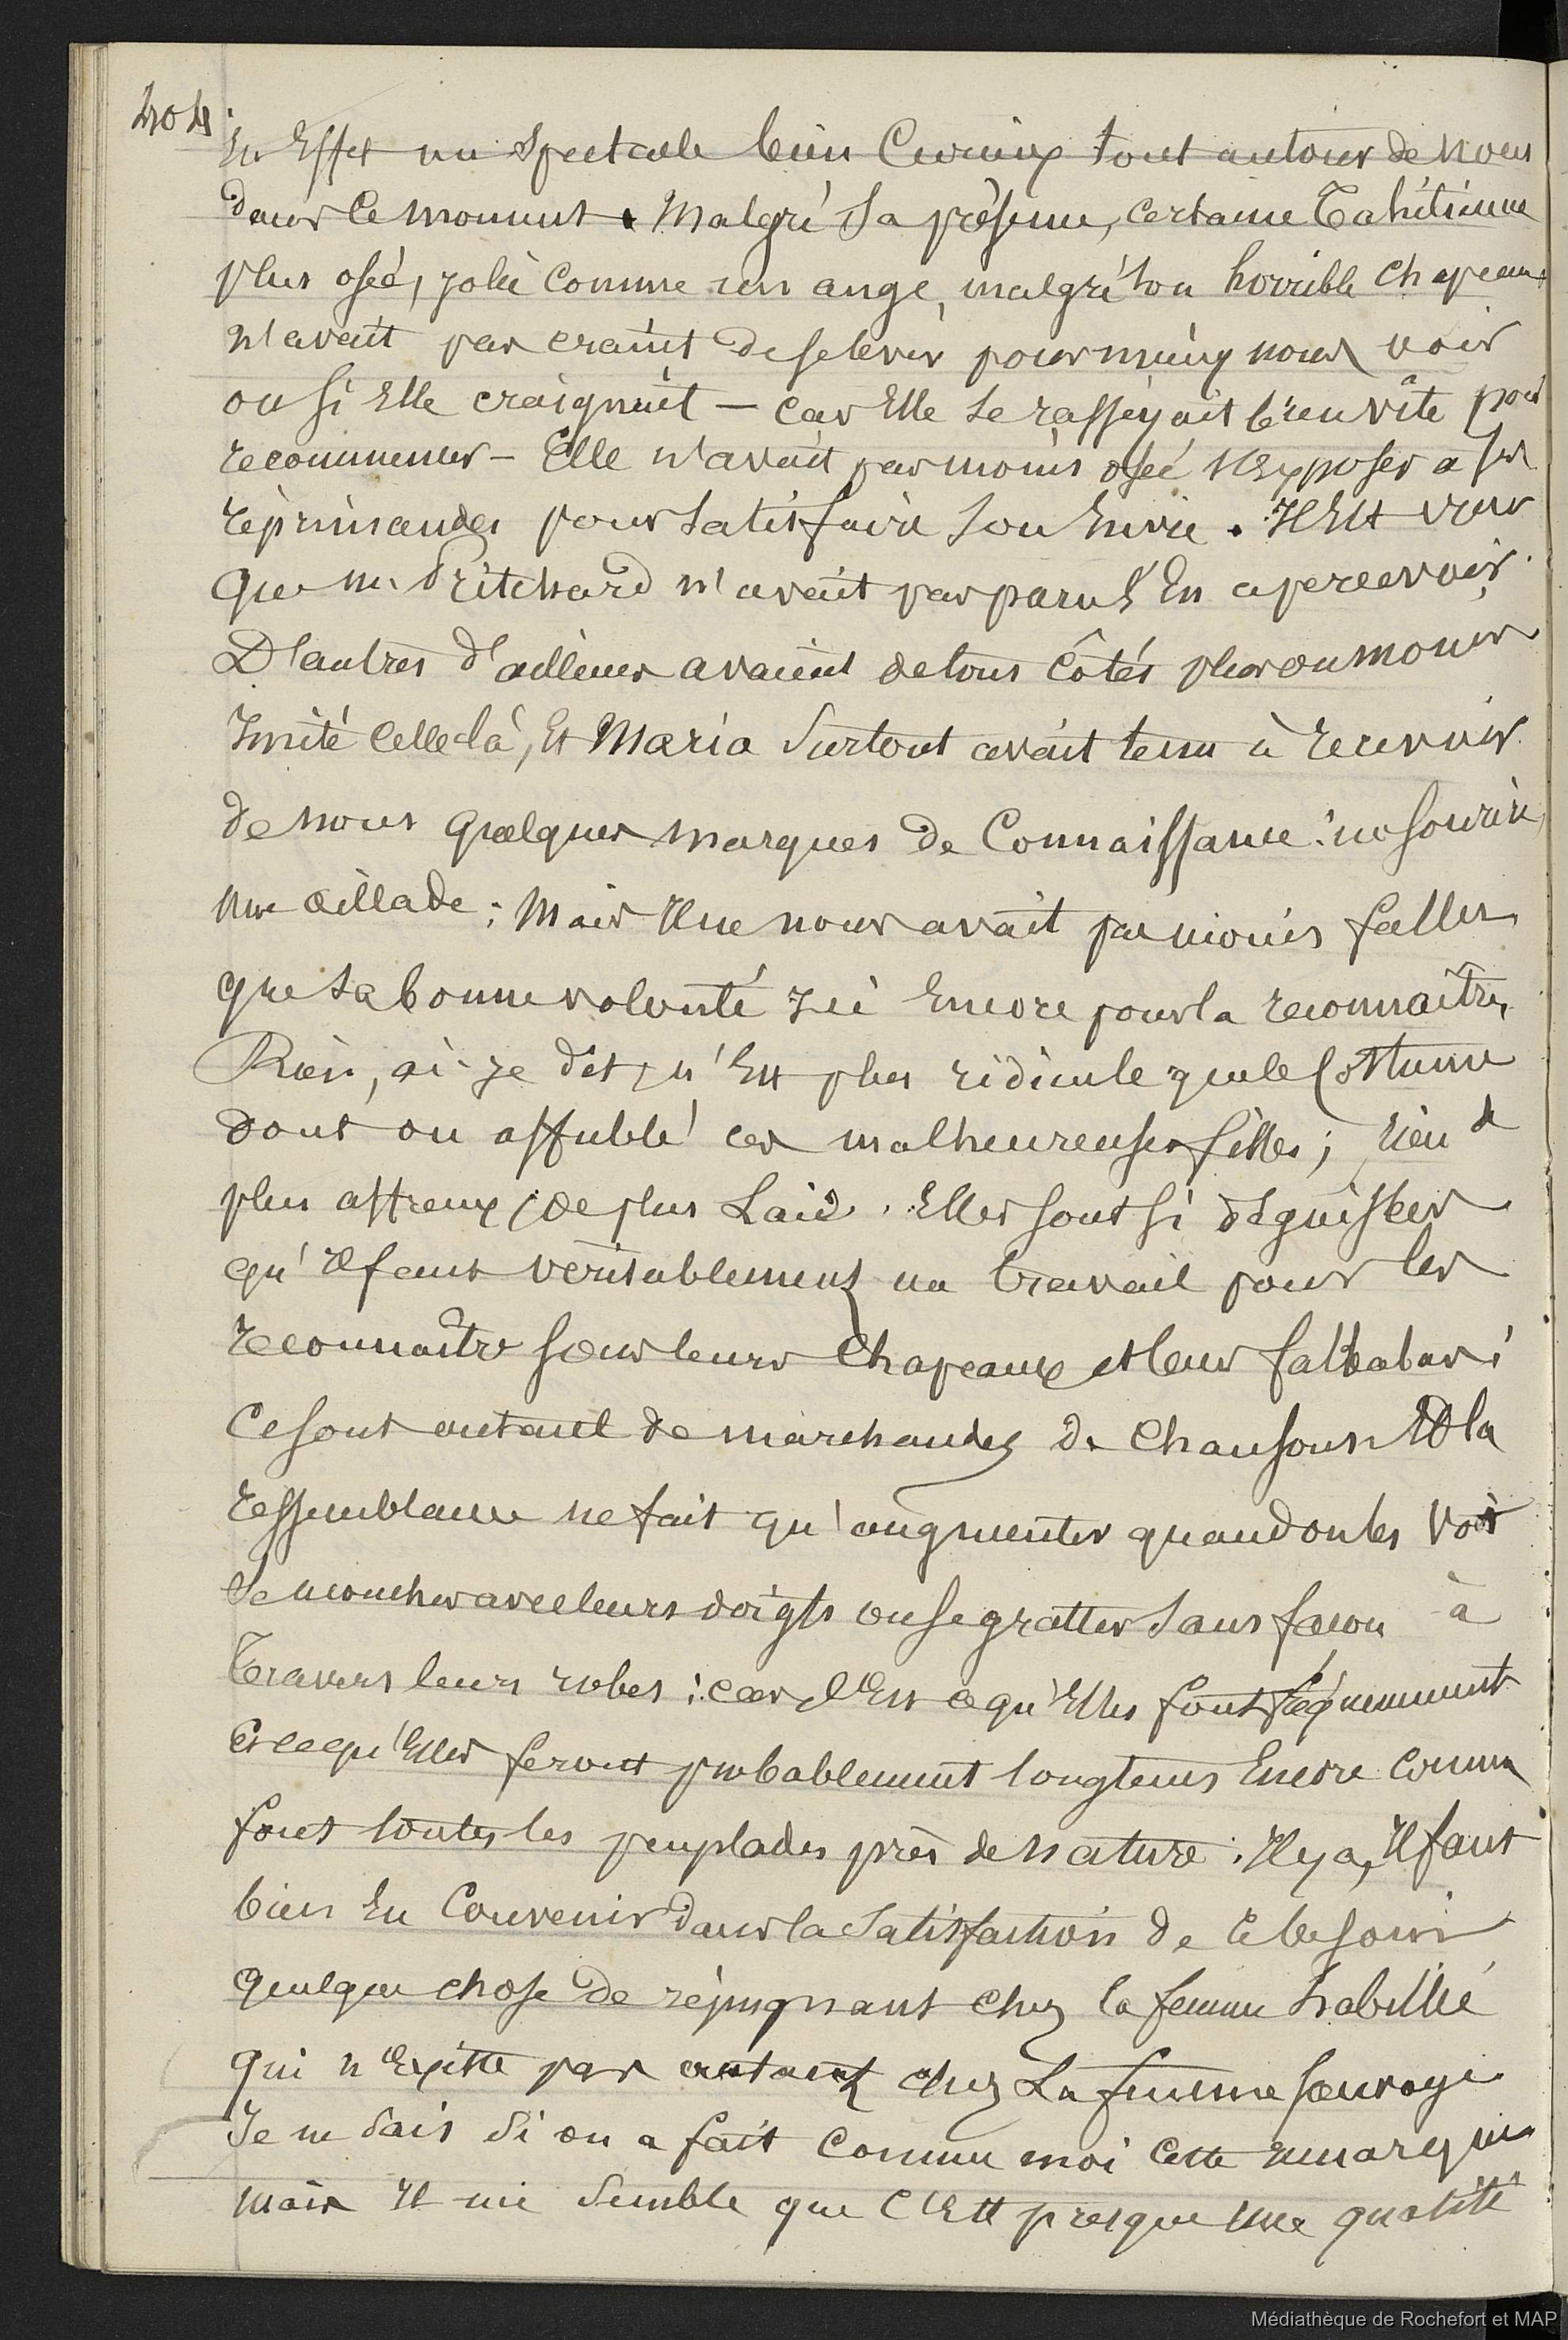 404.
En Effet un Spectacle bien Curieux tout autour de nous
dans ce moment. Malgré Sa présence, certaine Tahitienne
plus osée, jolie comme un ange, malgré son horrible chapeau,
n'avait pas craint de se lever pour mieux nous voir
ou si Elle craignait — car Elle se rasseyait bien vîte pour
recommencer — Elle n'avait pas moins osée s'Exposer à ses
réprimandes pour satisfaire son Envie. Il Est vrai
que M. Pritchard n'avait pas paru s'En apercevoir.
D'autres d'ailleurs avaient de tous Côtés plus ou moins
Imité celle là, Et Maria Surtout avait tenu à recevoir
de nous quelques marques de Connaissance : un sourire,
une œillade ; Mais Il ne nous avait pas moins fallu
que sa bonne volonté Ici Encore pour la reconnaître,
Rien, ai-je dit, n'Est plus ridicule que le Costume
dont on affuble ces malheureuses filles ; rien de
plus affreux, de plus Laid. Elles sont si déguisées
qu'Il faut véritablement un travail pour les
reconnaître sous leurs Chapeaux et leurs falbalas ;
Ce sont autant de marchandes de Chansons Et la
ressemblance ne fait qu'augmenter quand on les voit
Se moucher avec leurs doigts ou se gratter sans façon à
Travers leurs robes : car c'Est ce qu'Elles font fréquemment
Et ce qu'Elles feront probablement longtems Encore comme
font toutes les peuplades près de nature. Il y a, Il faut
bien En Convenir dans la Satisfaction de ce besoin
quelque chose de répugnant chez la femme habillée
qui n'Existe pas autant chez La femme sauvage
Je ne sais si on a fait comme moi cette remarque
mais Il me semble que C'Est presque une qualité
Médiathèque de Rochefort et MAP